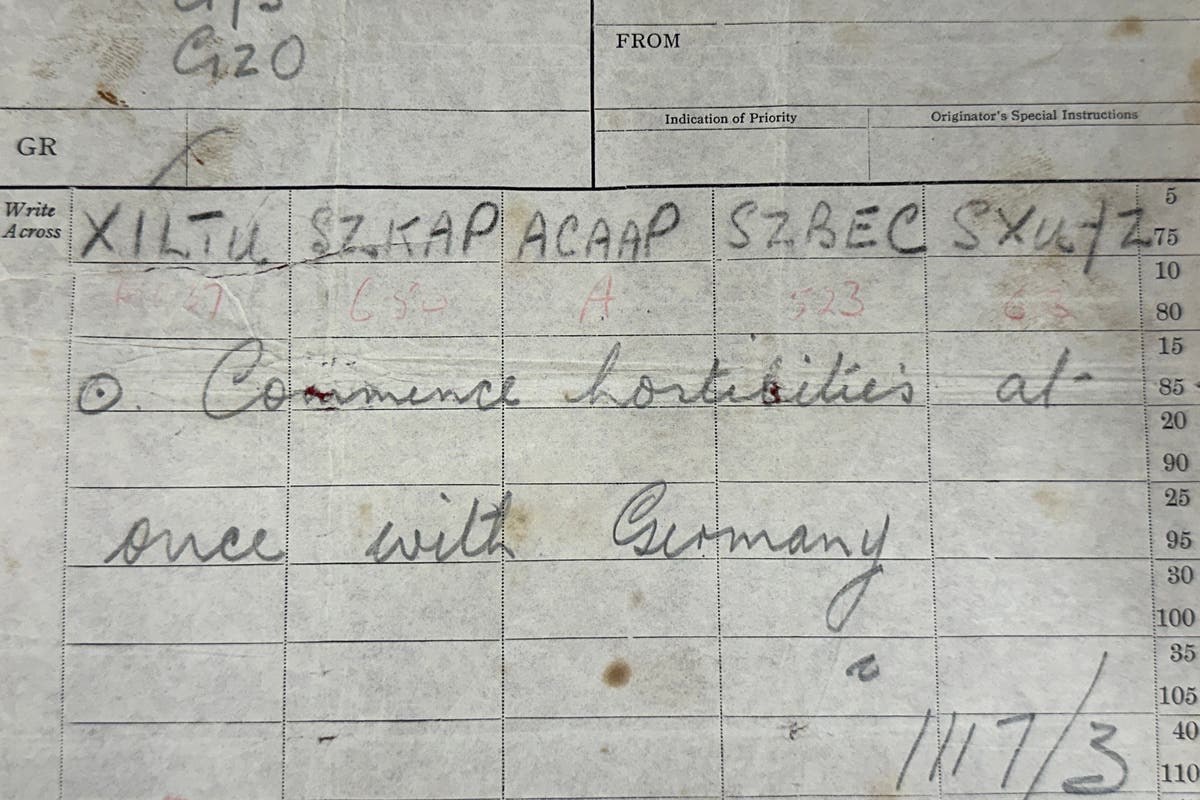 GZO
FROM
Indication of Priority Originator's Special Instructions
GR
Write Across
XILTU SZKAP ACAAP SZBEC 5
75
10
650 A 523 63 80
15
⊙. Commence hostilities at 85
20
90
25
once with Germany 95
30
100
35
105
40
1117/3
110